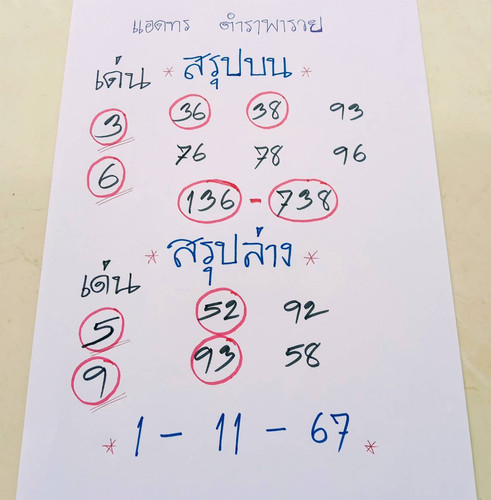 แอดทร ตำราพารวย
เด่น * สรุปบน *
3 36 38 93
6 76 78 96
136 - 738
เด่น * สรุปล่าง *
5 52 92
9 93 58
* 1 - 11 - 67 *